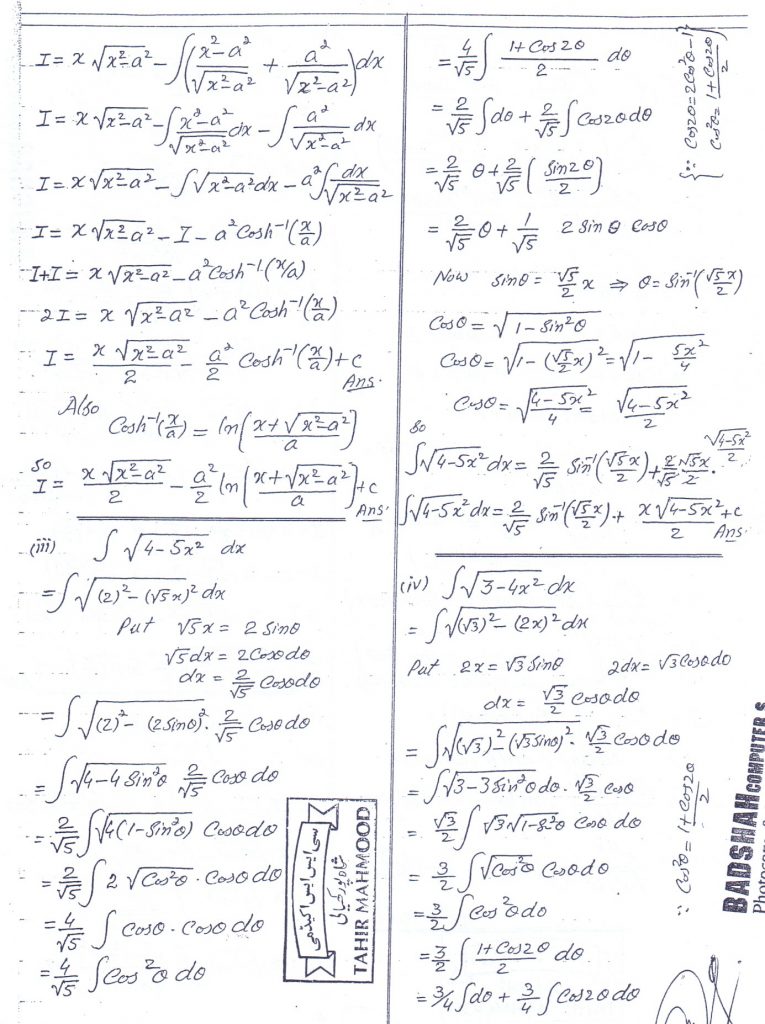 I = x √x²-a² - ∫(x²-a²/√x²-a² + a²/√x²-a²)dx
I = x √x²-a² - ∫ x²-a²/√x²-a² dx - ∫ a²/√x²-a² dx
I = x √x²-a² - ∫ √x²-a² dx - a² ∫ dx/√x²-a²
I = x √x²-a² - I - a² Cosh⁻¹(x/a)
I+I = x √x²-a² - a² Cosh⁻¹(x/a)
2I = x √x²-a² - a² Cosh⁻¹(x/a)
I = x √x²-a²/2 - a²/2 Cosh⁻¹(x/a) + c
Ans.
Also
Cosh⁻¹(x/a) = ln(x+√x²-a²/a)
So
I = x √x²-a²/2 - a²/2 ln(x+√x²-a²/a) + c
Ans.
(iii) ∫ √4-5x² dx
= ∫ √(2)²-(√5x)² dx
Put √5x = 2 Sinθ
√5 dx = 2Cosθ dθ
dx = 2/√5 Cosθ dθ
= ∫ √(2)²-(2Sinθ)² . 2/√5 Cosθ dθ
= ∫ √4-4Sin²θ 2/√5 Cosθ dθ
= 2/√5 ∫ √4(1-Sin²θ) Cosθ dθ
= 2/√5 ∫ 2 √Cos²θ . Cosθ dθ
= 4/√5 ∫ Cosθ . Cosθ dθ
= 4/√5 ∫ Cos²θ dθ
سی ایس ایس اکیڈمی
TAHIR MAHMOOD
= 4/√5 ∫ 1+Cos2θ/2 dθ
{∵ Cos2θ = 2Cos²θ-1
Cos²θ = 1+Cos2θ/2}
= 2/√5 ∫ dθ + 2/√5 ∫ Cos2θ dθ
= 2/√5 θ + 2/√5 (Sin2θ/2)
= 2/√5 θ + 1/√5 2 Sinθ Cosθ
Now Sinθ = √5/2 x ⇒ θ = Sin⁻¹(√5x/2)
Cosθ = √1-Sin²θ
Cosθ = √1-(√5/2 x)² = √1- 5x²/4
Cosθ = √4-5x²/4 = √4-5x²/2
So
∫ √4-5x² dx = 2/√5 Sin⁻¹(√5x/2) + 2/√5 √5x/2 . √4-5x²/2
∫ √4-5x² dx = 2/√5 Sin⁻¹(√5x/2) + x√4-5x²/2 + c
Ans.
(iv) ∫ √3-4x² dx
= ∫ √(√3)²-(2x)² dx
Put 2x = √3 Sinθ 2dx = √3 Cosθ dθ
dx = √3/2 Cosθ dθ
= ∫ √(√3)²-(√3Sinθ)² . √3/2 Cosθ dθ
= ∫ √3-3Sin²θ dθ . √3/2 Cosθ
= √3/2 ∫ √3 √1-S²θ Cosθ dθ
= 3/2 ∫ √Cos²θ Cosθ dθ
= 3/2 ∫ Cos²θ dθ
∵ Cos²θ = 1+Cos2θ/2
= 3/2 ∫ 1+Cos2θ/2 dθ
= 3/4 ∫ dθ + 3/4 ∫ Cos2θ dθ
BADSHAH COMPUTER S